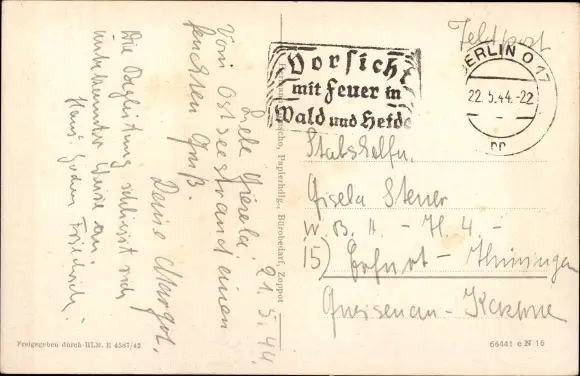 Feldpost
BERLIN O 17
22.5.44.-22
Vorsicht
mit Feuer in
Wald und Heide
Stabshelfn.
Gisela Steuer
W. B. K. - H. 4. -
15) Erfurt - Thüringen
Gneisenau - Kaserne
21. 5. 44.
Liebe Gisela!
Vom Ostseestrand einen
feuchten Gruß.
Deine Margot.
Die Begleitung schliesst sich
unbekannter Weise an.
Hans
Papierhdlg., Bürobedarf, Zoppot
Freigegeben durch RLM. E 4587/42
66441 e N 16